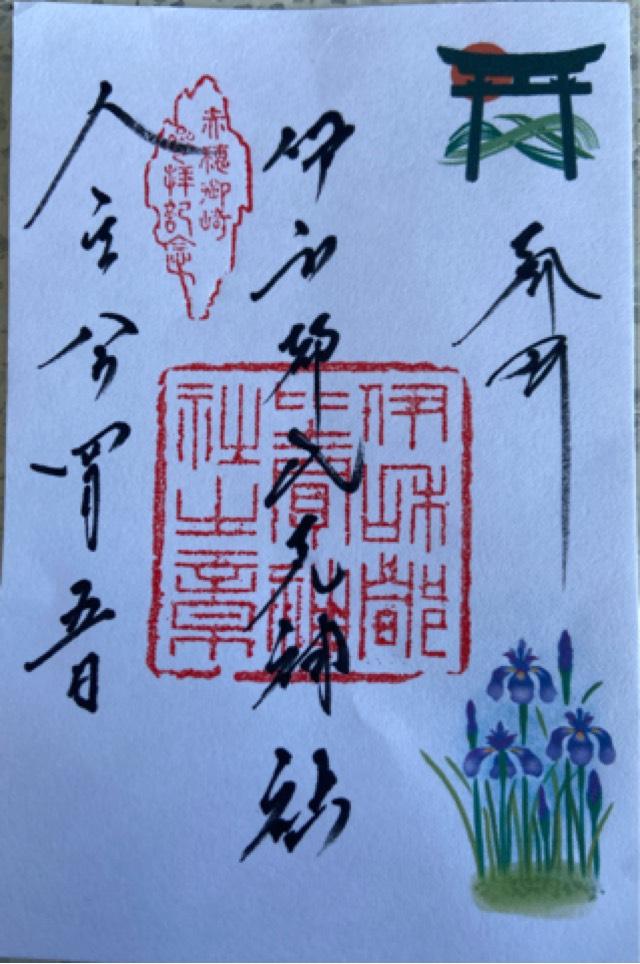 奉拝
伊和都比売神社
赤穂御崎
参拝記念
伊和都
比賣神
社之章
四月五日